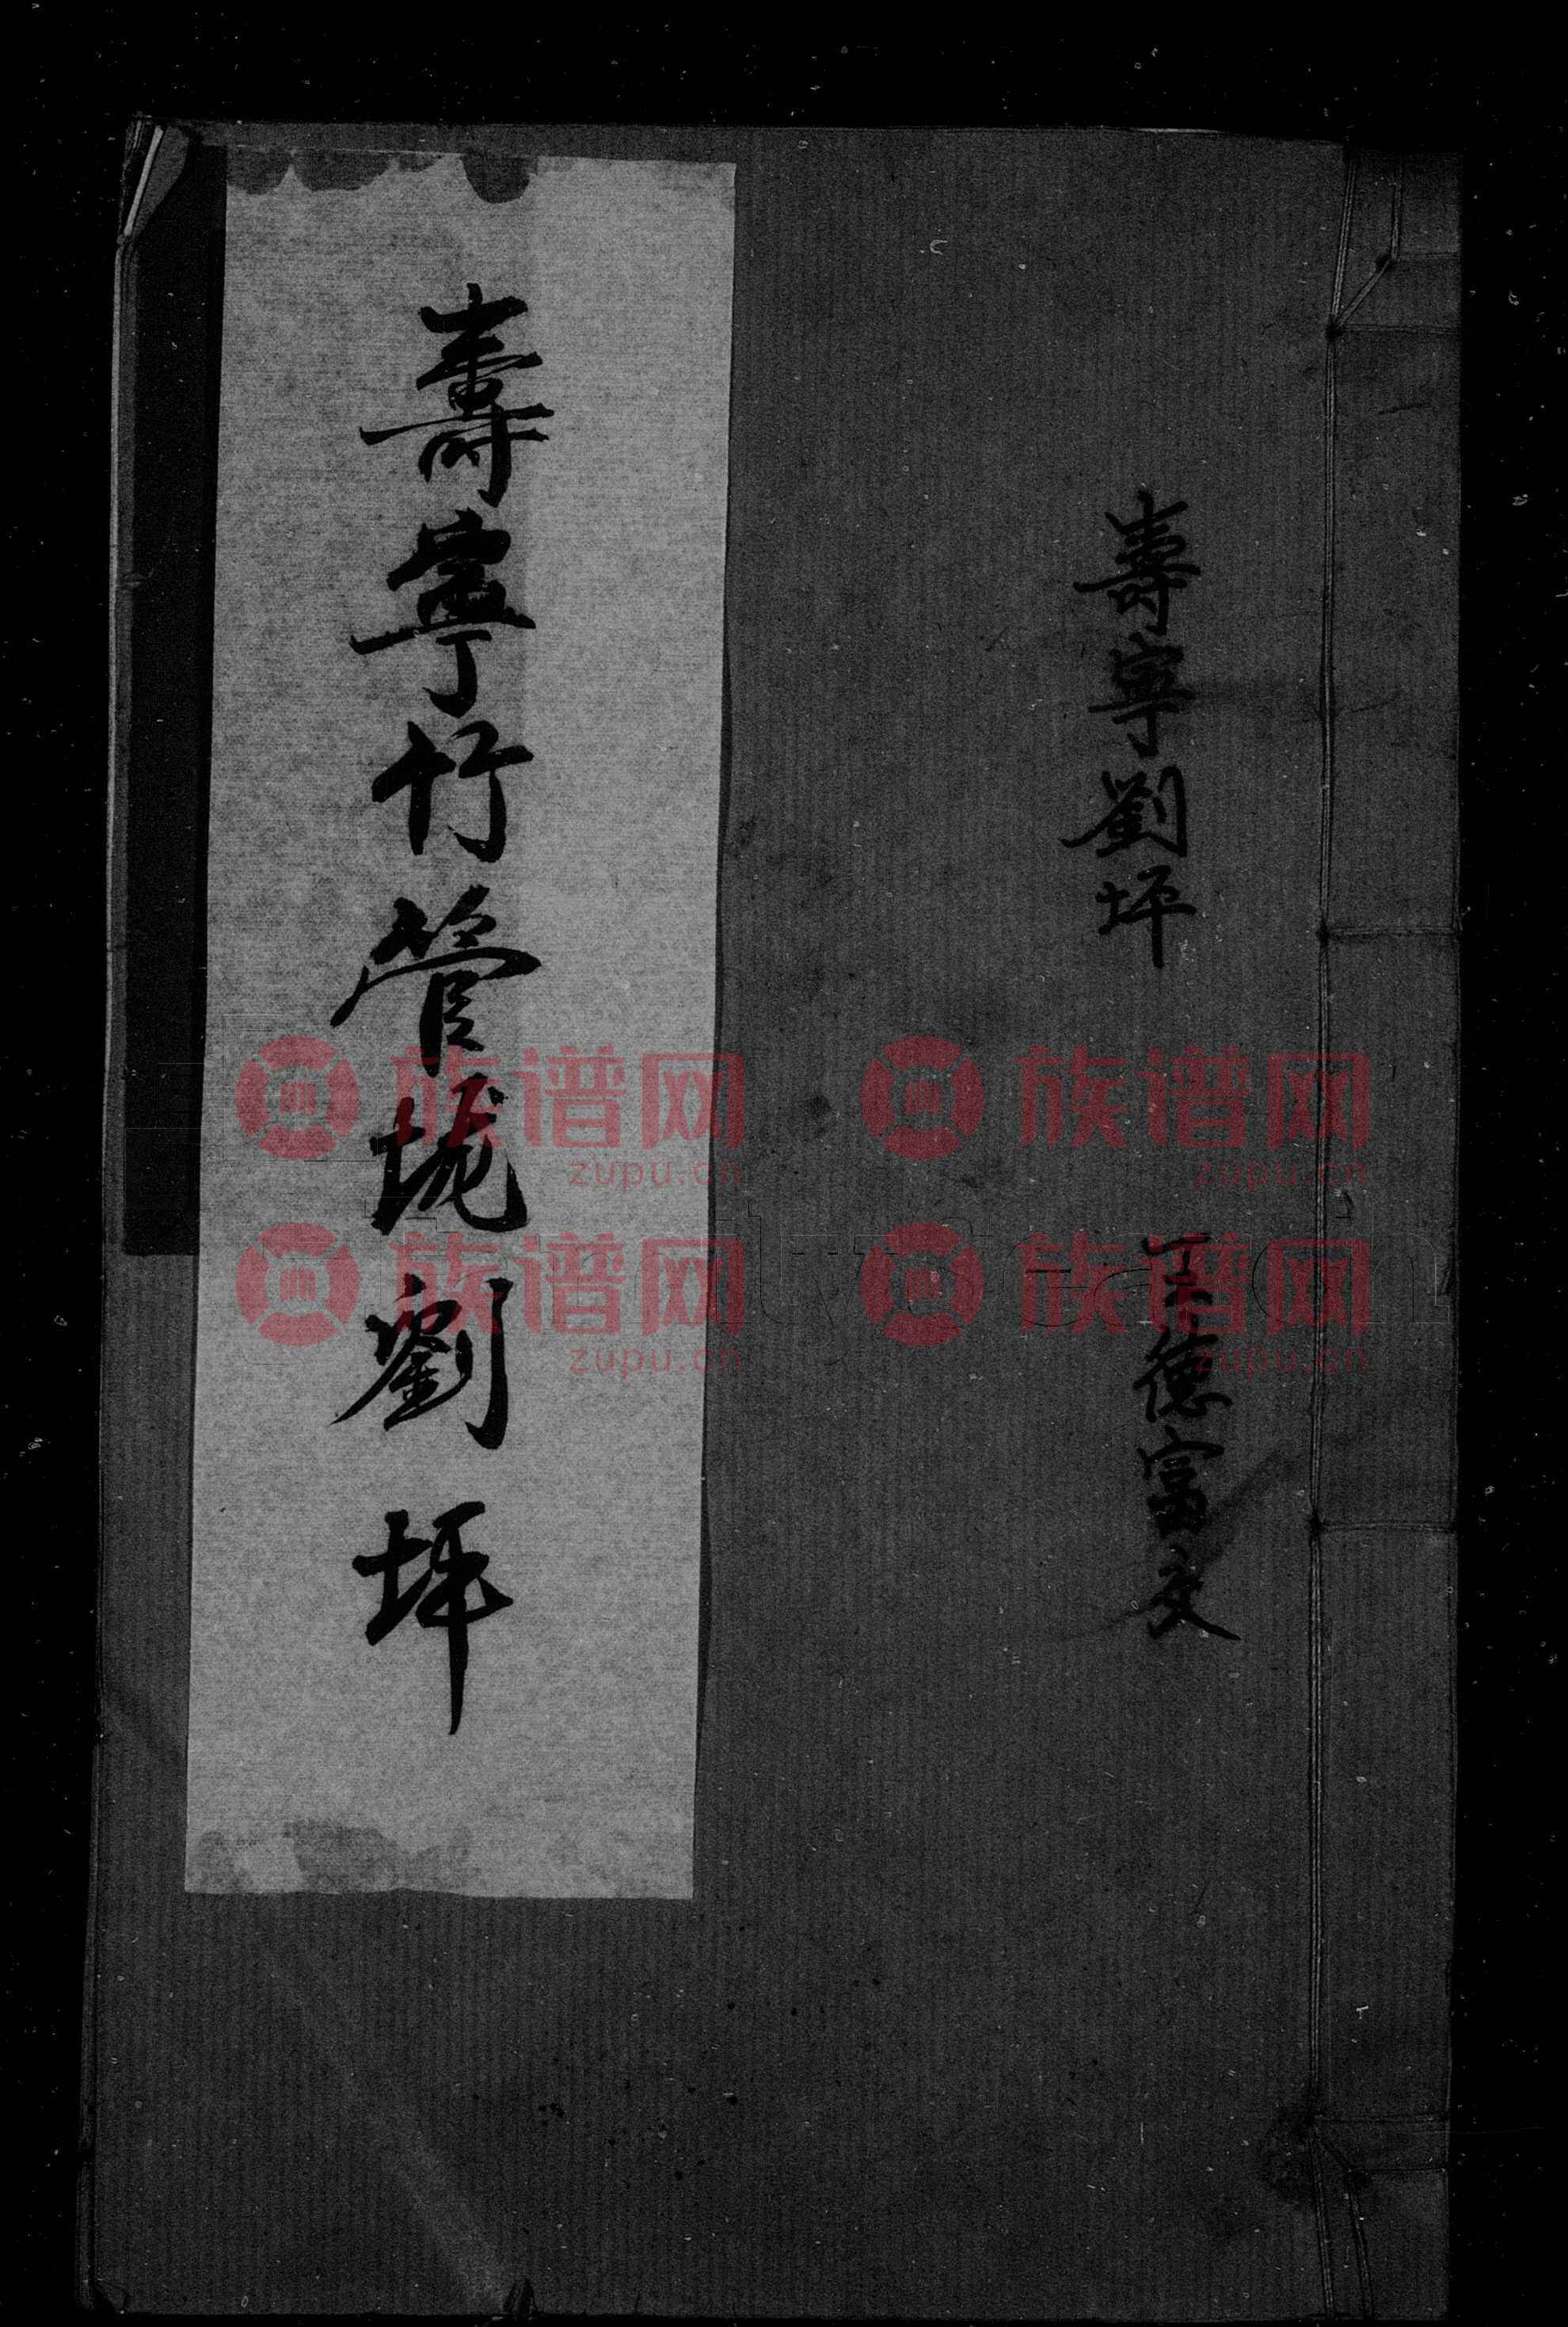 壽寧劉坪
王德富交
壽寧竹管垅劉坪
族谱网
zupu.cn
族谱网
zupu.cn
族谱网
zupu.cn
族谱网
zupu.cn